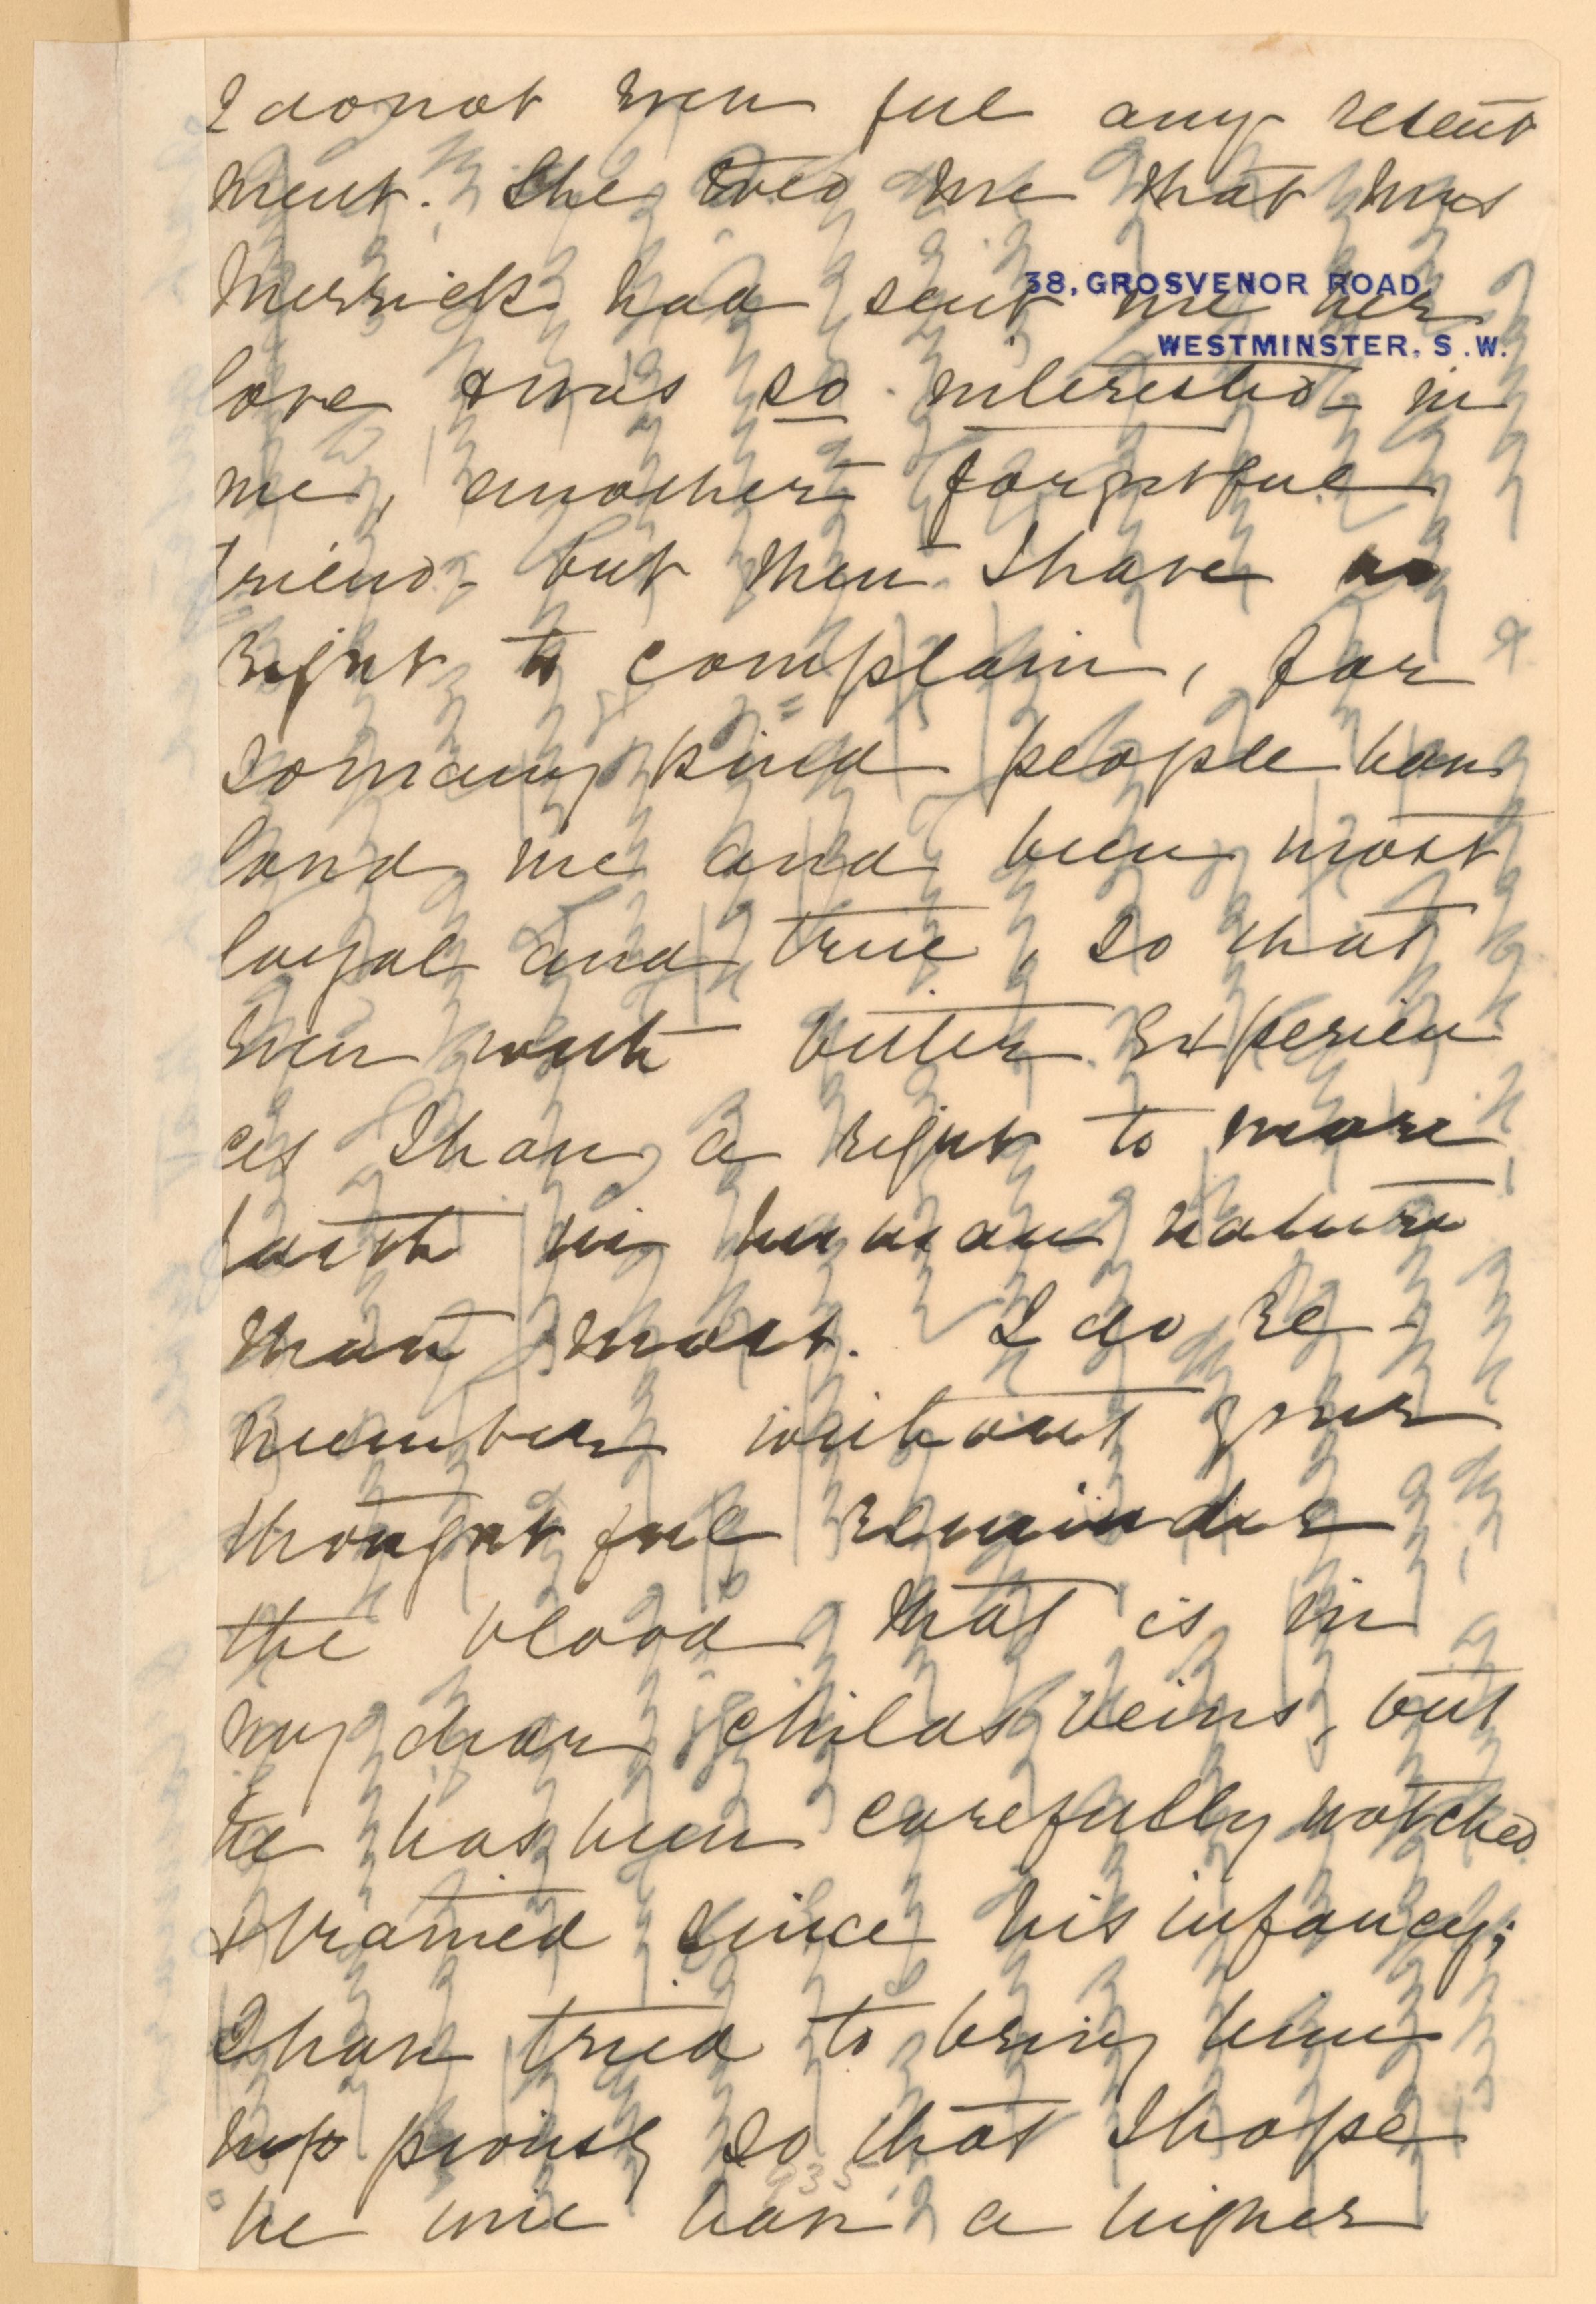 I do not even feel any resent
ment. She told me that Mrs
38, GROSVENOR ROAD,
WESTMINSTER, S.W.
Merrick had sent me her
love & was so interested in
me, another forgetful
friend - but then I have no
right to complain, for
so many kind people have
loved me and been most
loyal and true, so that
even with bitter experien
ces I have a right to more
faith in human nature
than most. I do re-
member without your
thoughtful reminder
the blood that is in
my dear child's veins, but
he has been carefully watched
& trained since his infancy;
I have tried to bring him
up piously so that I hope
he will have a higher